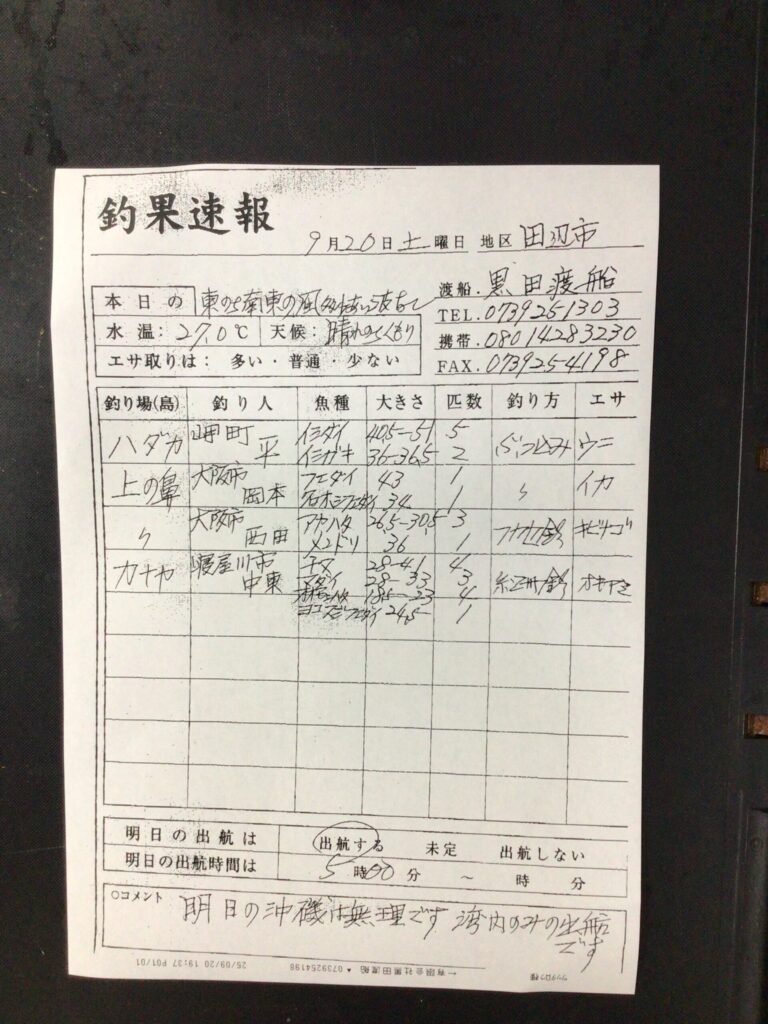 釣果速報
9月20日土曜日 地区 田辺市
本日の 東のち南東の風 波あり
水温: 27.0℃ 天候: 晴れのちくもり
エサ取りは: 多い・普通・少ない
渡船. 黒田渡船
TEL. 0739251303
携帯. 08014283230
FAX. 073925-4198
釣り場(島) 釣り人 魚種 大きさ 匹数 釣り方 エサ
ハダカ 岬町 平 イシダイ 40.5-51 5 ぶっ込み ウニ
イシガキ 36-36.5 2
上の鼻 大阪市 岡本 フエダイ 43 1 〃 イカ
フエダイ 34 1
〃 大阪市 西田 アヤハタ 26.5-30.5 3 キビナゴ
メンドリ 36 1
カナヤ 寝屋川市 中東 チヌ 28-41 4 紀州釣 オキアミ
マダイ 28-33 3
18.5-23 4
ヨコスジフエダイ 24.5- 1
明日の出航は 出航する 未定 出航しない
明日の出航時間は 5時00分 ~ 時 分
○コメント 明日の沖磯は無理です 湾内のみの出船
です
25/09/20 19:37 P01/01 ←有限会社黒田渡船 ▲ 0739254198